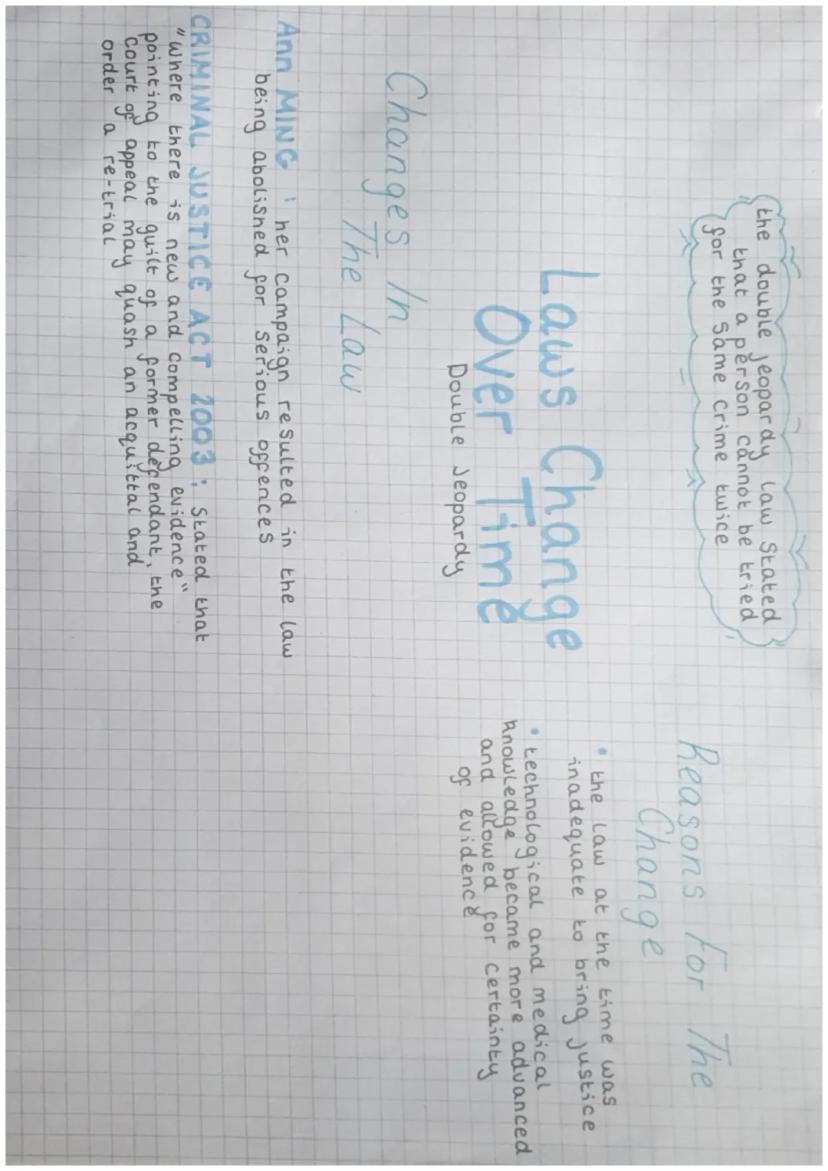 the double jeopardy law stated
that a person cannot be tried
for the same crime twice
Laws Change
Over Time
Double Jeopardy
Reasons For The
Change
• the law at the time was
inadequate to bring justice
• technological and medical
knowledge became more advanced
and allowed for certainty
of evidence
Changes In
The Law
Ann MING : her campaign resulted in the law
being abolished for serious offences
CRIMINAL JUSTICE ACT 2003 : Stated that
"where there is new and compelling evidence"
pointing to the guilt of a former defendant, the
court of appeal may quash an acquittal and
order a re-trial